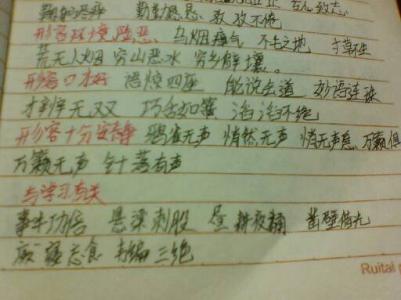 勤勤恳恳 孜孜不倦
形容环境险恶: 乌烟瘴气 不毛之地 寸草不生
荒无人烟 穷山恶水 穷乡僻壤。
形容口才好 语惊四座 能说会道 妙语连珠
才辩无双 巧舌如簧 滔滔不绝
形容十分安静 鸦雀无声 悄然无声 悄无声息 万籁俱
万籁无声 针落有声
与学习有关
事半功倍 悬梁刺股 昼耕夜诵 凿壁偷光
废寝忘食 韦编三绝
Ruital